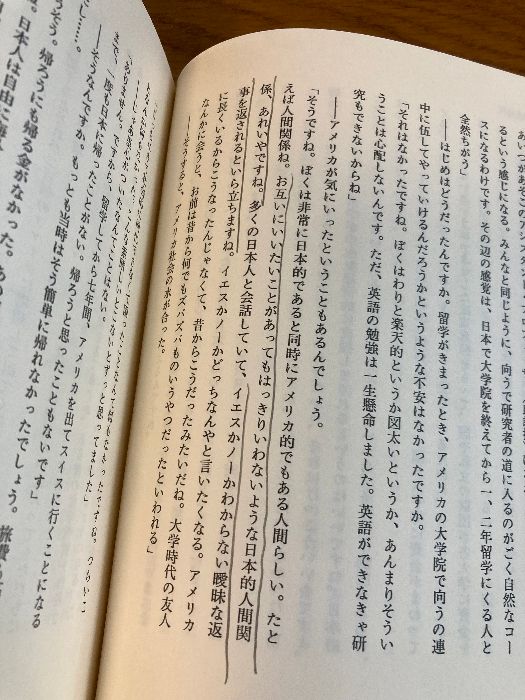 るという感じになる。みんなと同じように、向うで研究者の道に入るのがごく自然なコー
スになるわけです。その辺の感覚は、日本で大学院を終えてから一、二年留学にくる人と
全然ちがう」
――はじめはどうだったんですか。留学がきまったとき、アメリカの大学院で向うの連
中に伍してやっていけるんだろうかというような不安はなかったですか。
「それはなかったですね。ぼくはわりと楽天的というか図太いというか、あんまりそうい
うことは心配しないんです。ただ、英語の勉強は一生懸命しました。英語ができなきゃ研
究もできないからね」
――アメリカが気にいったということもあるんでしょう。
「そうですね。ぼくは非常に日本的であると同時にアメリカ的でもある人間らしい。たと
えば人間関係ね。お互いにいいたいことがあってもはっきりいわないような日本的人間関
係、あれいやですね。多くの日本人と会話していて、イエスかノーかわからない曖昧な返
事を返されるといら立ちますね。イエスかノーかどっちなんやと言いたくなる。アメリカ
に長くいるからこうなったんじゃなくて、昔からこうだったみたいだね。大学時代の友人
なんかに会うと、お前は昔から何でもズバズバものいうやつだったといわれる」
――そうすると、アメリカ社会の水が合った。
まで、一度も日本に帰ったことがない。帰ろうと思ったこともないです」
――そうなんですか。もっとも当時はそう簡単に帰れなかったでしょう。旅費
そう。帰ろうにも帰る金がなかった。